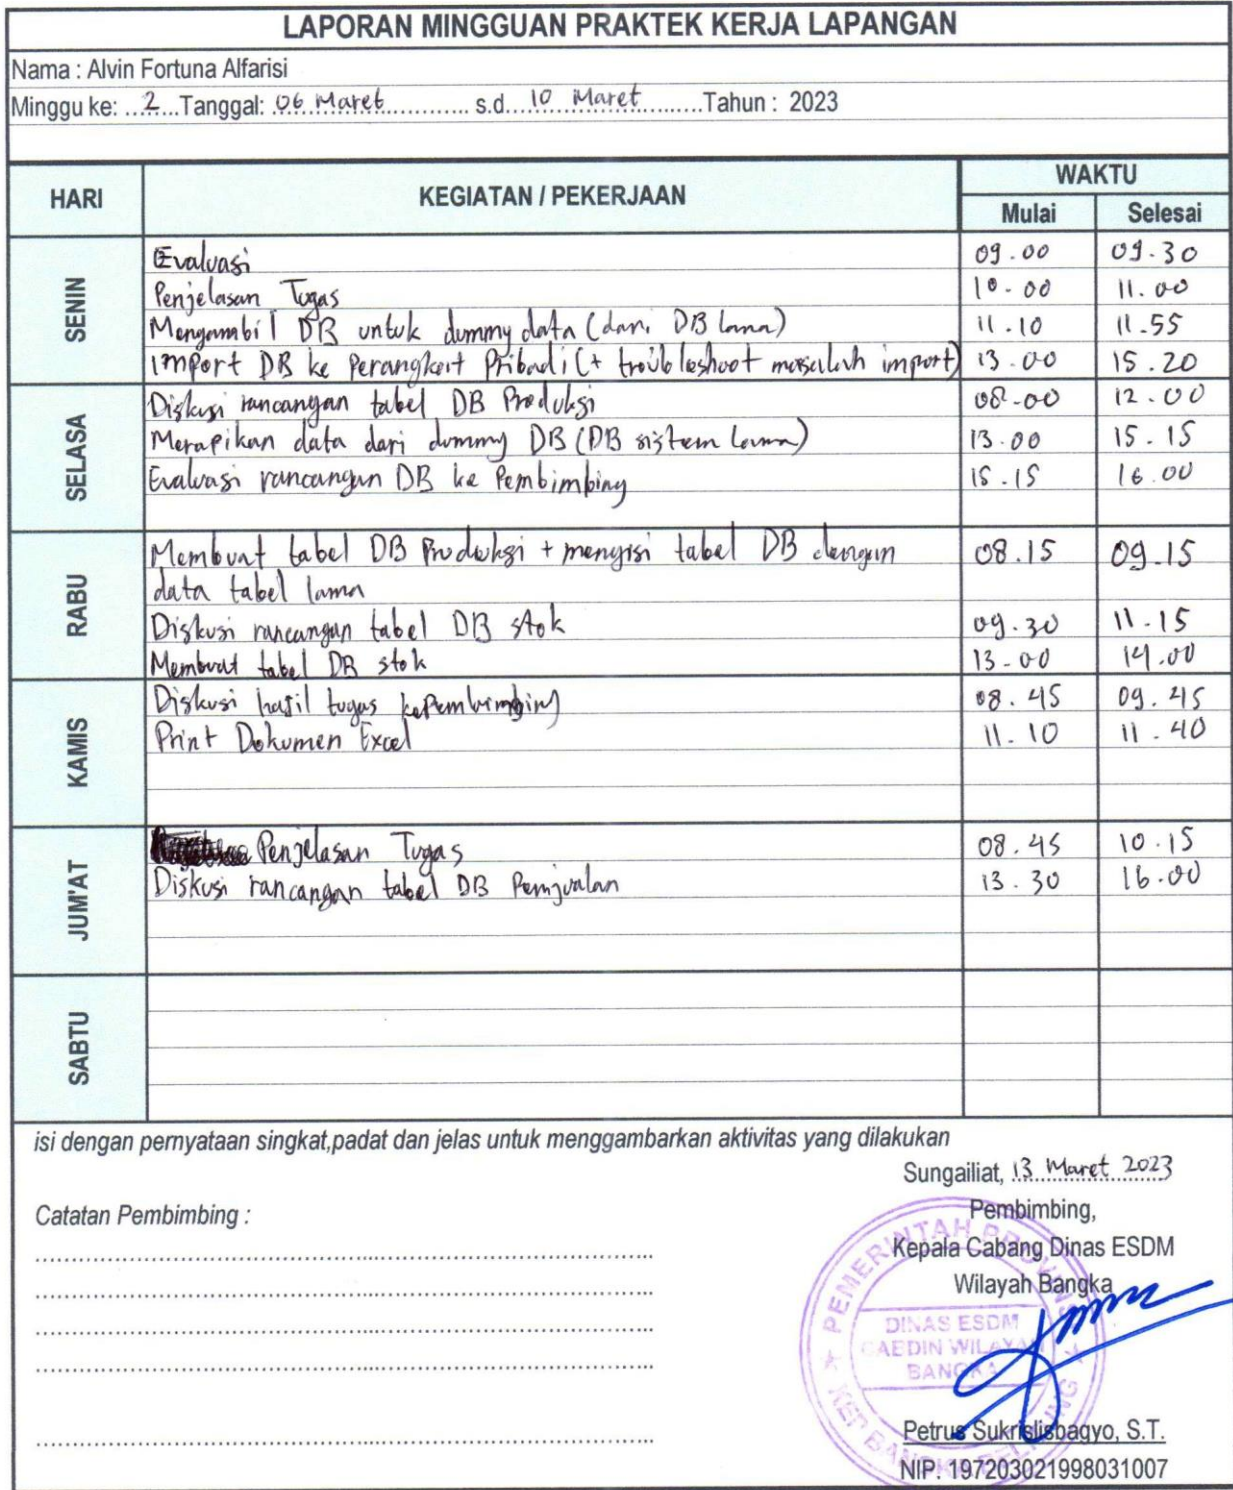 LAPORAN MINGGUAN PRAKTEK KERJA LAPANGAN
Nama : Alvin Fortuna Alfarisi
Minggu ke: ...2.......Tanggal: 06 Maret............. s.d....10 Maret..........Tahun : 2023
HARI KEGIATAN / PEKERJAAN WAKTU
Mulai Selesai
SENIN
Evaluasi 09.00 09.30
Penjelasan Tugas 10.00 11.00
Mengambil DB untuk dummy data (dari DB lama) 11.10 11.55
Import DB ke Perangkat Pribadi (+ troubleshoot masalah import) 13.00 15.20
SELASA
Diskusi rancangan tabel DB Produksi 08.00 12.00
Merapikan data dari dummy DB (DB sistem lama) 13.00 15.15
Evaluasi rancangan DB ke Pembimbing 15.15 16.00
RABU
Membuat tabel DB Produksi + mengisi tabel DB dengan 08.15 09.15
data tabel lama
Diskusi rancangan tabel DB stok 09.30 11.15
Membuat tabel DB stok 13.00 14.00
KAMIS
Diskusi hasil tugas ke Pembimbing 08.45 09.45
Print Dokumen Excel 11.10 11.40
JUM'AT
Penjelasan Tugas 08.45 10.15
Diskusi rancangan tabel DB Penjualan 13.30 16.00
SABTU
isi dengan pernyataan singkat,padat dan jelas untuk menggambarkan aktivitas yang dilakukan
Sungailiat, 13 Maret 2023
Catatan Pembimbing :
Pembimbing,
Kepala Cabang Dinas ESDM
Wilayah Bangka
PEMERINTAH PROVINSI
DINAS ESDM
CABDIN WILAYAH
BANGKA
KEP BANGKA BELITUNG
Petrus Sukrislisbagyo, S.T.
NIP. 197203021998031007